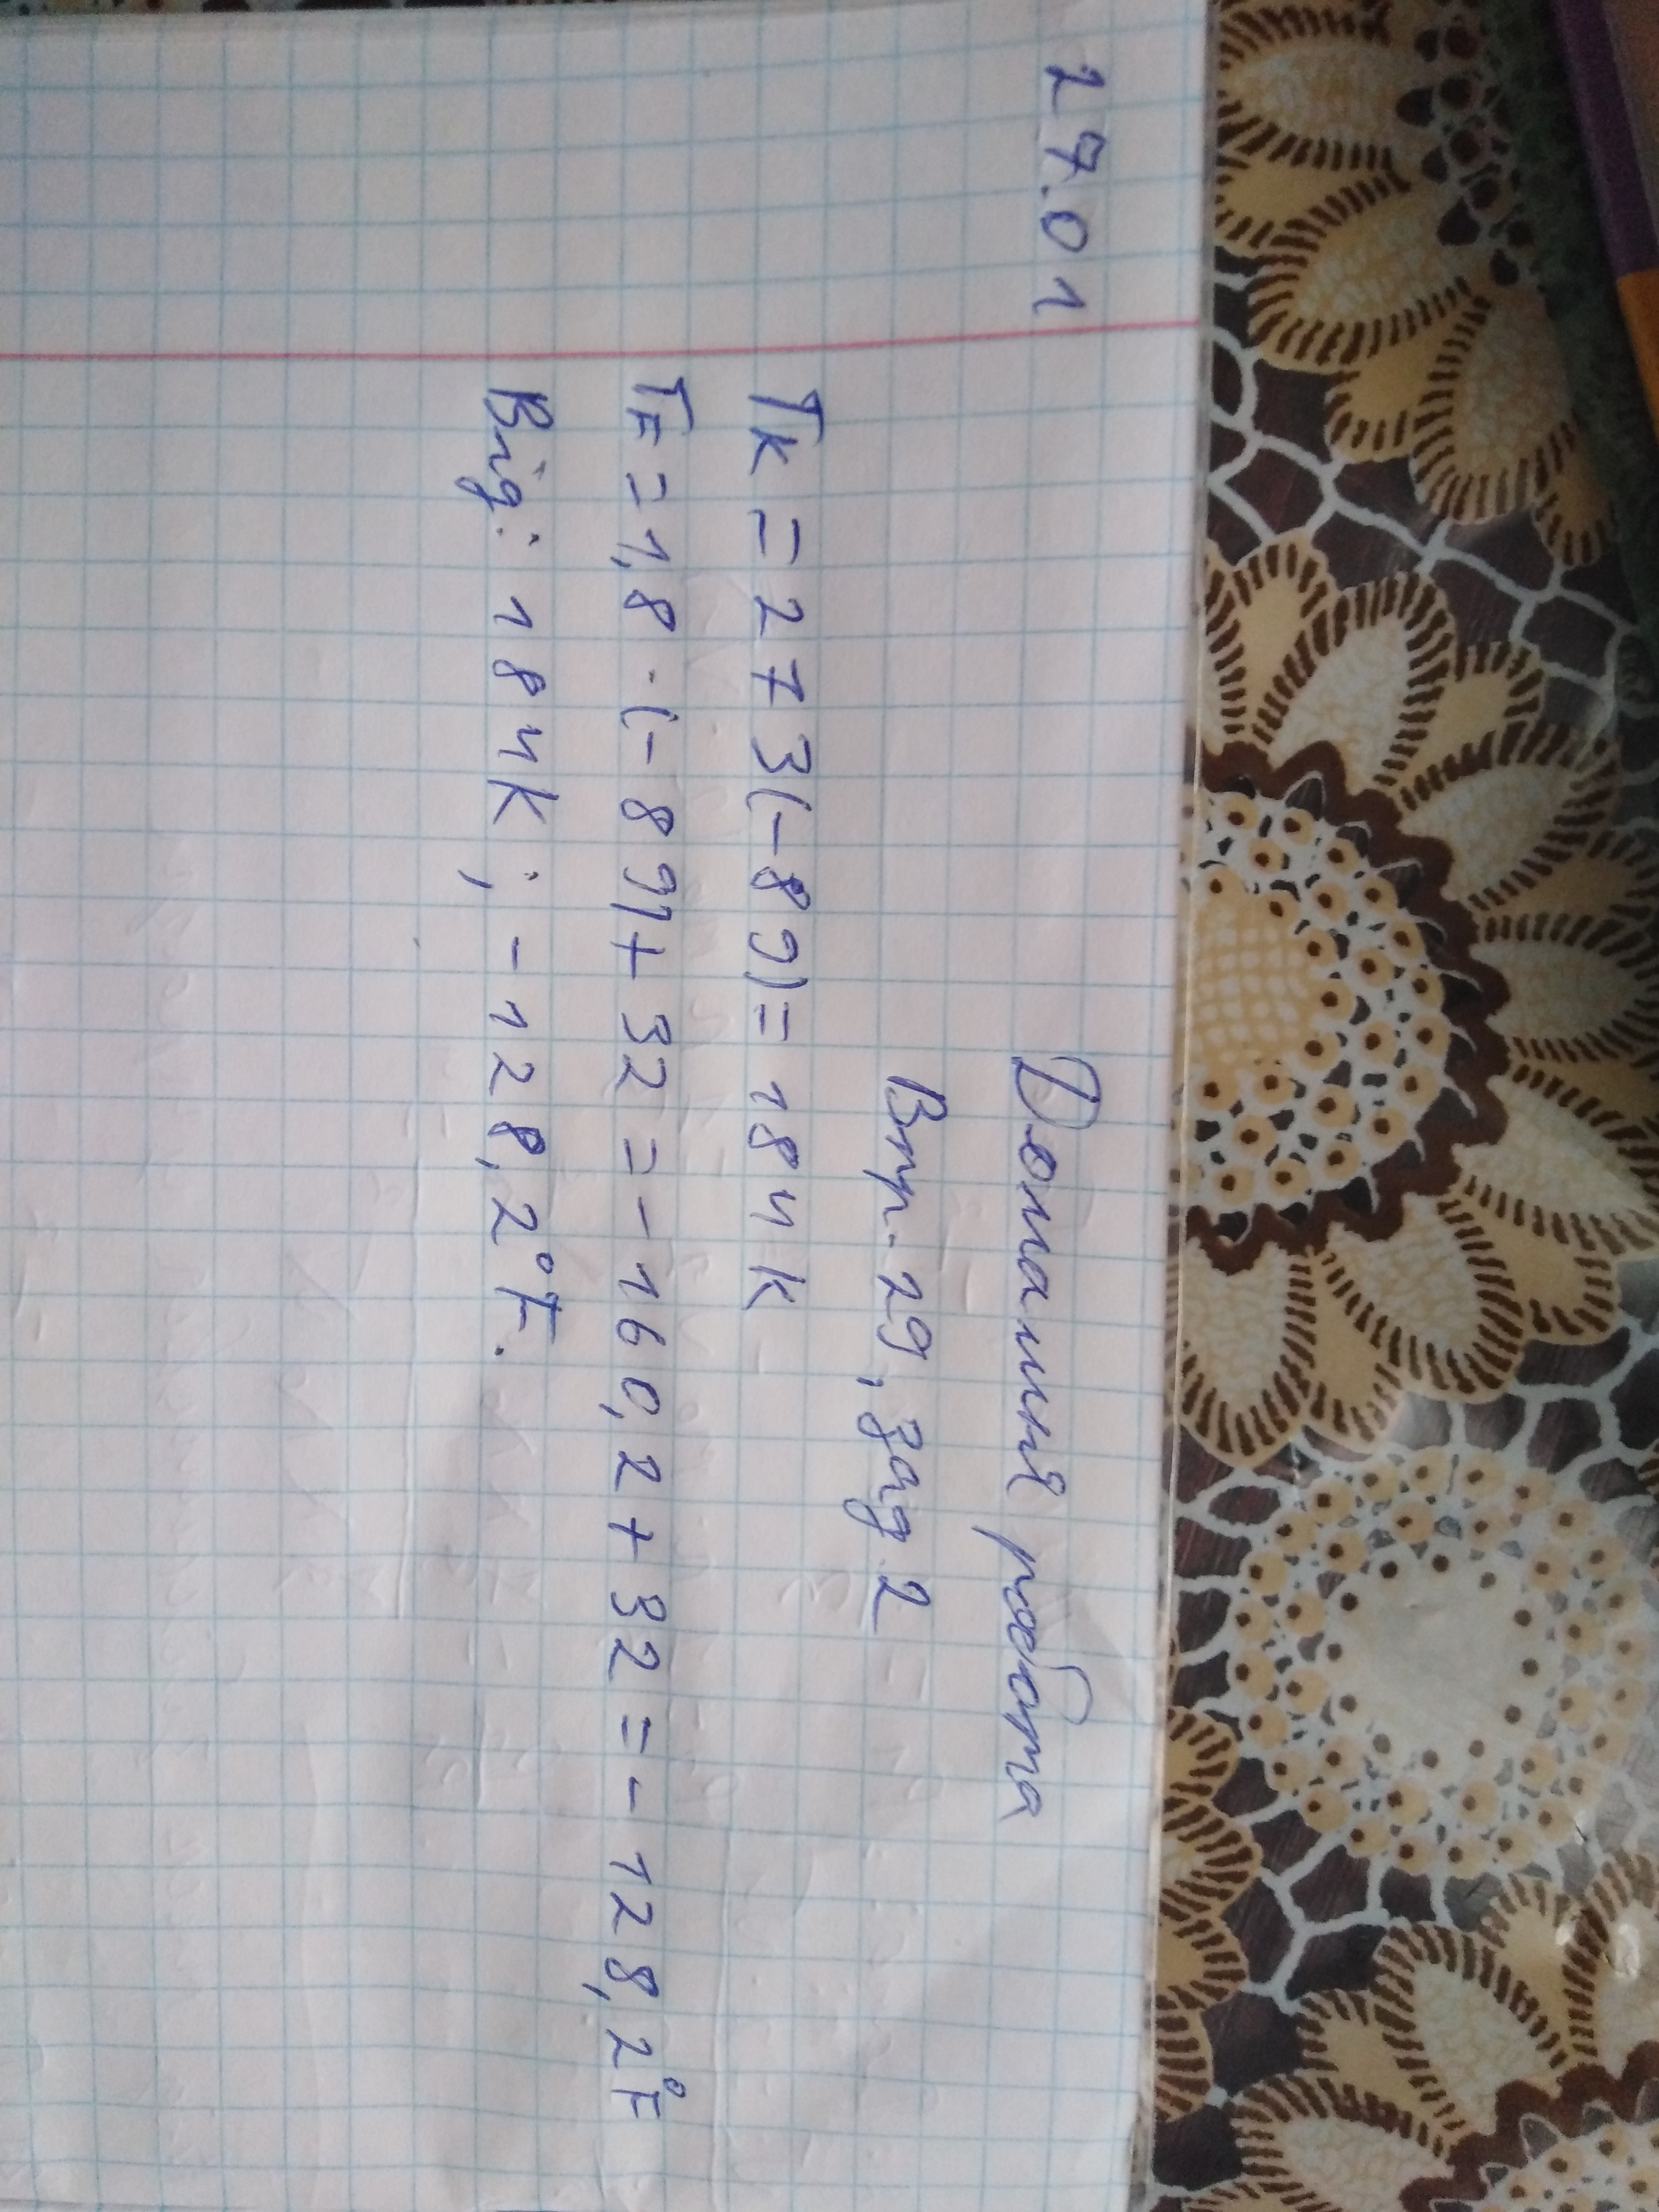 27.01
Домашня робота
Впр. 29, зад 2
Tк = 273(-89) = 184 К
TF = 1,8 · (-89) + 32 = -160,2 + 32 = -128,2°F
Від: 184К; -128,2°F.